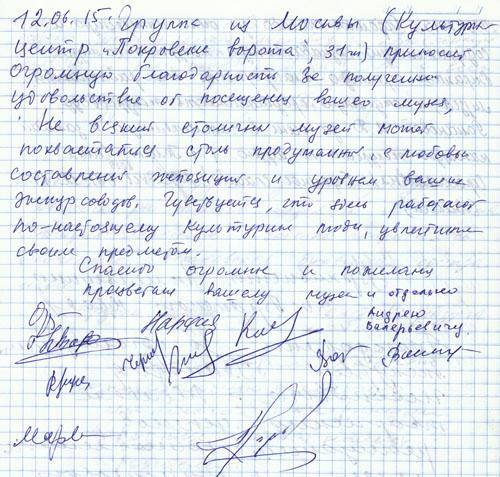 12.06.15. Группа из Москвы (Культурн
центр "Покровские ворота", 31 ч) приносит
огромную благодарность за полученное
удовольствие от посещения вашего музея.
Не всякий столичный музей может
похвастаться столь продуманной, с любовью
составленной экспозицией и уровнем ваших
экскурсоводов. Чувствуется, что здесь работают
по-настоящему культурные люди, увлеченные
своим предметом.
Спасибо огромное и пожелания
процветания вашему музею и отдельно
Андрею
Валерьевичу.